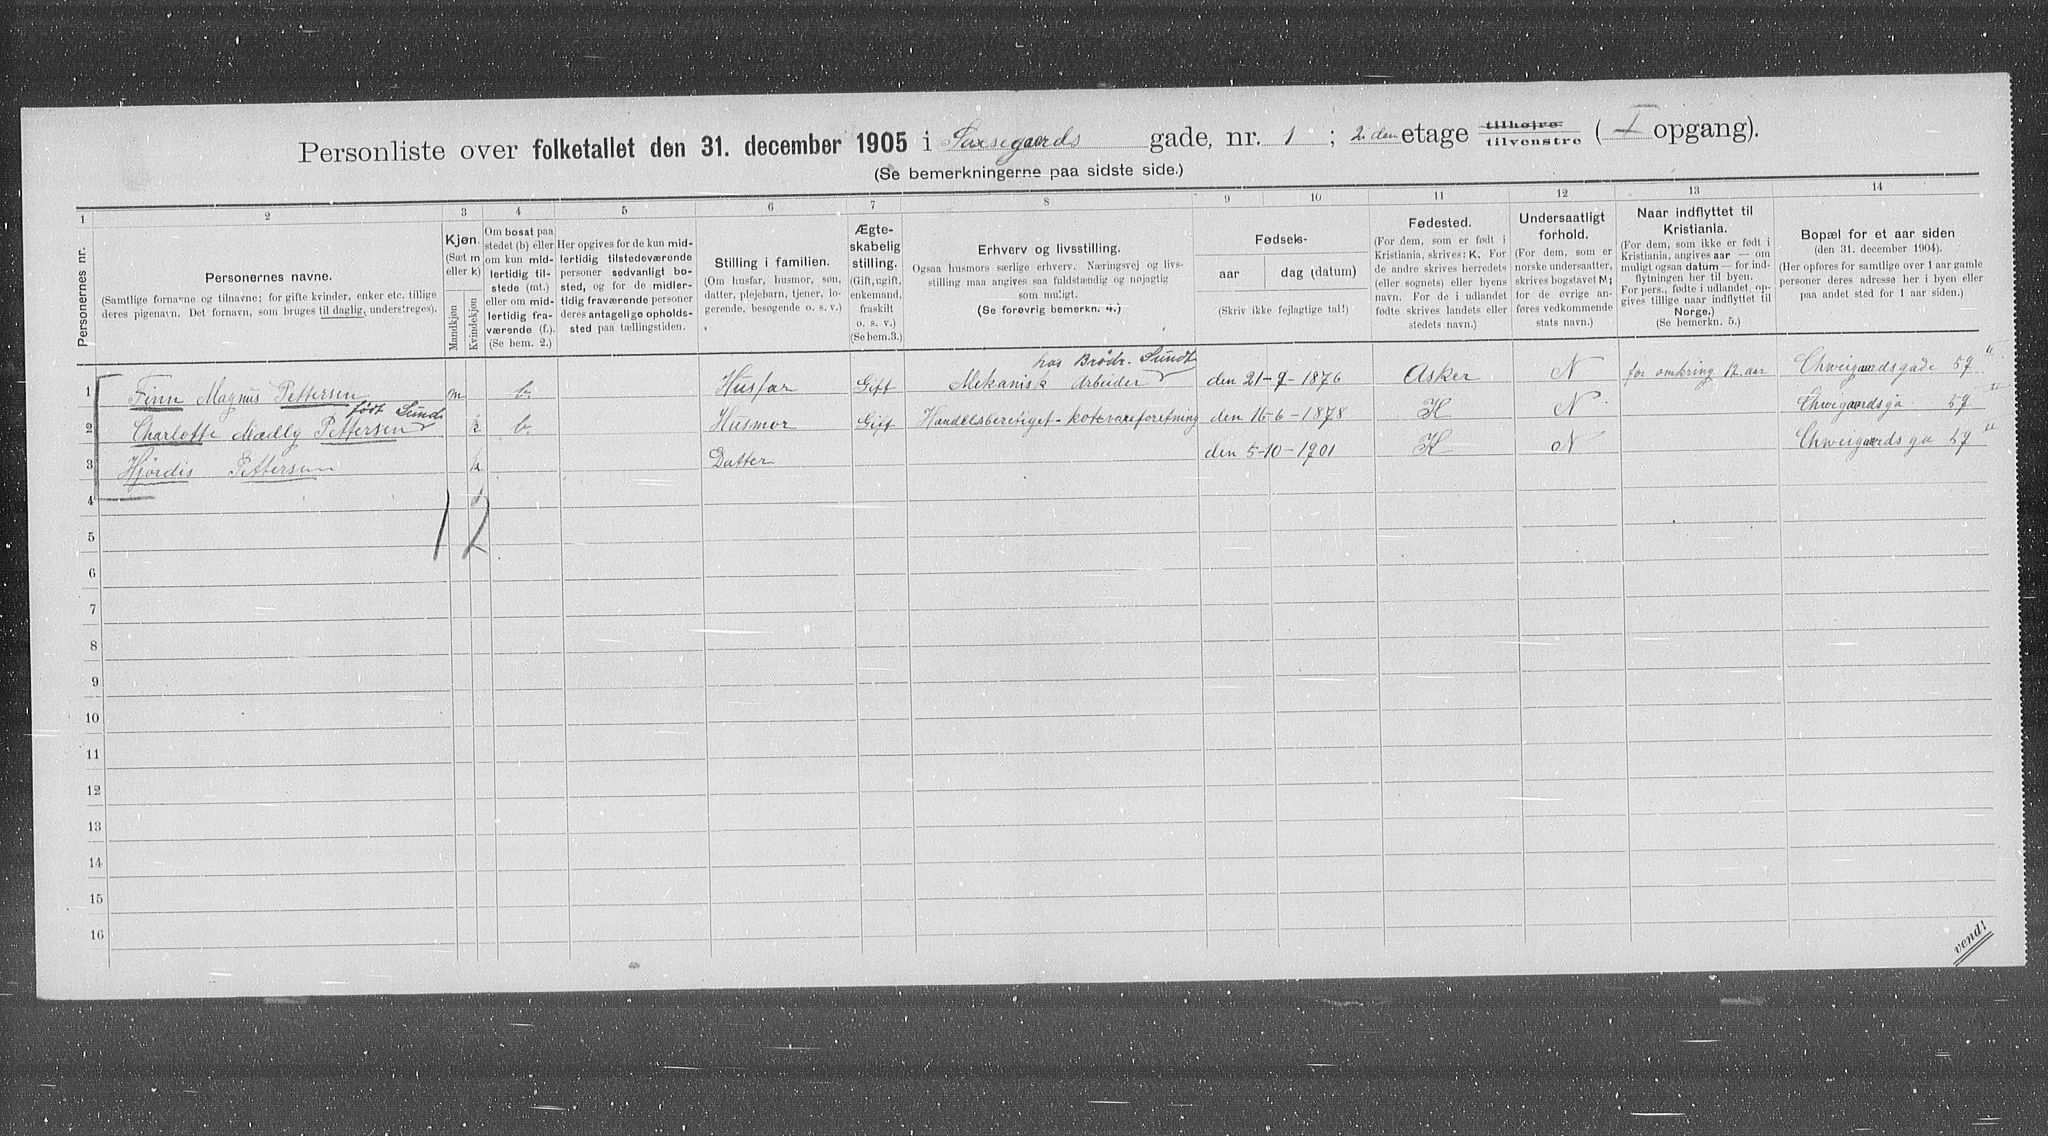 Personliste over folketallet den 31. december 1905 i Saxegaards gade, nr. 1 ; 2 den etage tilhøjre tilvenstre ( I opgang).
(Se bemerkningerne paa sidste side.)
1 2 3 4 5 6 7 8 9 10 11 12 13 14
Personernes nr.
Personernes navne.
(Samtlige fornavne og tilnavne; for gifte kvinder, enker etc. tillige
deres pigenavn. Det fornavn, som bruges til daglig, understreges).
Kjøn.
(Sæt m
eller k)
Mandkjøn
Kvindekjøn
Om bosat paa
stedet (b) eller
om kun mid-
lertidig til-
stede (mt.)
eller om mid-
lertidig fra-
værende (f.).
(Se bem. 2.)
Her opgives for de kun mid-
lertidig tilstedeværende
personer sedvanligt bo-
sted, og for de midler-
tidig fraværende personer
deres antagelige opholds-
sted paa tællingstiden.
Stilling i familien.
(Om husfar, husmor, søn,
datter, plejebarn, tjener, lo-
gerende, besøgende o. s. v.)
Ægte-
skabelig
stilling.
(Gift, ugift,
enkemand,
fraskilt
o. s. v.)
(Se bem.3.)
Erhverv og livsstilling.
Ogsaa husmors særlige erhverv. Næringsvej og livs-
stilling maa angives saa fuldstændig og nøjagtig
som muligt.
(Se forøvrig bemerkn. 4.)
Fødsels-
aar dag (datum)
(Skriv ikke fejlagtige tal!)
Fødested.
(For dem, som er født i
Kristiania, skrives: K. For
de andre skrives herredets
(eller sognets) eller byens
navn. For de i udlandet
fødte skrives landets eller
stedets navn.)
Undersaatligt
forhold.
(For dem, som er
norske undersaatter,
skrives bogstavet N;
for de øvrige an-
føres vedkommende
stats navn.)
Naar indflyttet til
Kristiania.
(For dem, som ikke er født i
Kristiania, angives aar — om
muligt ogsaa datum — for ind-
flytningen her til byen.
For pers., fødte i udlandet, op-
gives tillige naar indflyttet til
Norge.)
(Se bemerkn. 5.)
Bopæl for et aar siden
(den 31. december 1904).
(Her opføres for samtlige over 1 aar gamle
personer deres adresse her i byen eller
paa andet sted for 1 aar siden.)
hos Brødr. Sundt
1 Finn Magnus Pettersen m b. Husfar Gift Mekanisk Arbeider den 21-9-1876 Asker N for omkring 12 aar Chweigaardsgade 57 "
født Sunde
2 Charlotte Mælly Pettersen k b. Husmor Gift Handelsberetiget - kolevareforetning den 15-6-1878 K N Chweigaardsga 57 "
3 Hjørdis Pettersen k Datter den 5-10-1901 K N Chweigaardsga 57 "
4
1 2
5
6
7
8
9
10
11
12
13
14
15
16
vend!